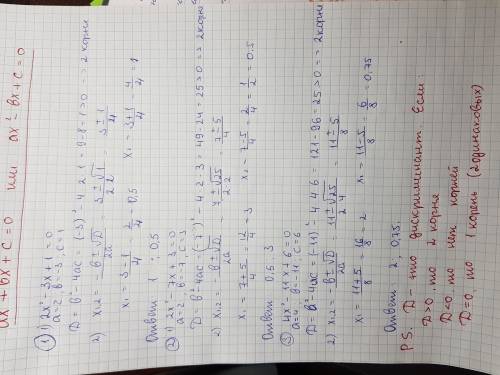 ax² + bx + c = 0 или ax² - bx + c = 0
① 1) 2x² - 3x + 1 = 0
a=2; b=-3; c=1
D = b² - 4ac = (-3)² - 4·2·1 = 9 - 8 = 1 > 0 => 2 корня
2) x₁,₂ = (-b ± √D)/2a = (3 ± √1)/2·2 = (3 ± 1)/4
x₁ = (3-1)/4 = 2/4 = 0,5 x₂ = (3+1)/4 = 4/4 = 1
Ответ: 1; 0,5
② 1) 2x² - 7x + 3 = 0
a=2; b=-7; c=3
D = b² - 4ac = (-7)² - 4·2·3 = 49 - 24 = 25 > 0 => 2 корня
2) x₁,₂ = (-b ± √D)/2a = (7 ± √25)/2·2 = (7 ± 5)/4
x₁ = (7+5)/4 = 12/4 = 3 x₂ = (7-5)/4 = 2/4 = 1/2 = 0.5
Ответ: 0,5; 3
③ 4x² - 11x + 6 = 0
a=4; b=-11; c=6
D = b² - 4ac = (-11)² - 4·4·6 = 121 - 96 = 25 > 0 => 2 корня
2) x₁,₂ = (-b ± √D)/2a = (11 ± √25)/2·4 = (11 ± 5)/8
x₁ = (11+5)/8 = 16/8 = 2 x₁ = (11-5)/8 = 6/8 = 0,75
Ответ: 2; 0,75.
P.S. D - это дискриминант. Если
D>0, то 2 корня
D=0, то нет корней
D=0, то 1 корень (2 одинаковых)